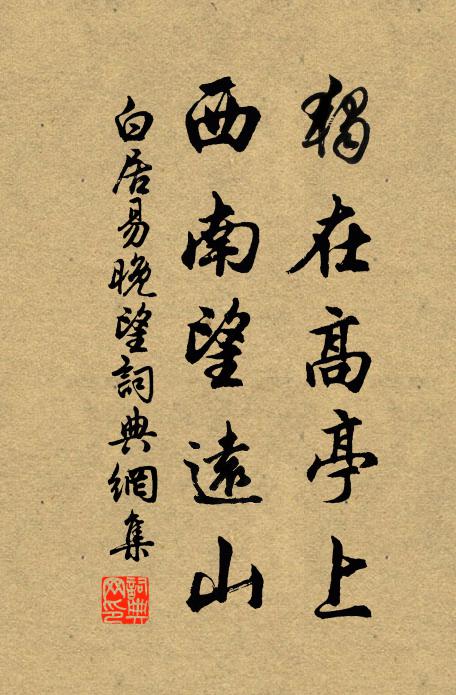 獨在高亭上
西南望遠山
白居易晚望詞典網集
詞典
网印